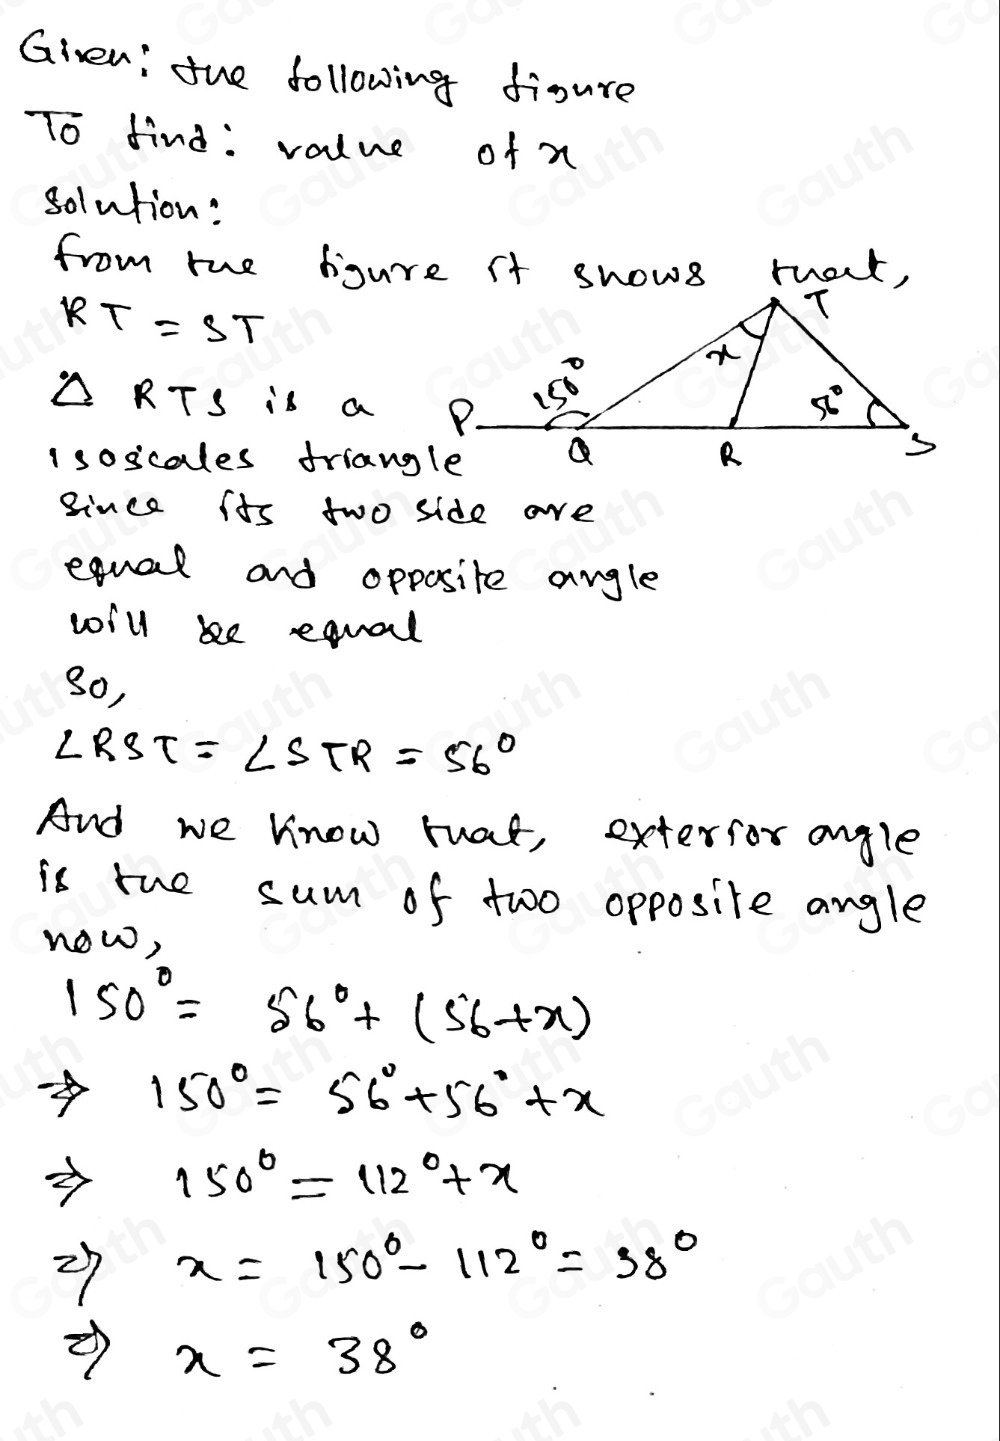 Given: the following figure
To find: value of x
Solution:
from the figure it shows that,
RT = ST
T
x
150°
56°
P
Q
R
S
△ RTS is a
isoscales triangle
since its two side are
equal and opposite angle
will be equal
So,
∠RST = ∠STR = 56°
And we know that, exterior angle
is the sum of two opposite angle
now,
150° = 56° + (56+x)
⇒ 150° = 56° + 56° + x
⇒ 150° = 112° + x
⇒ x = 150° - 112° = 38°
⇒ x = 38°
Gauth